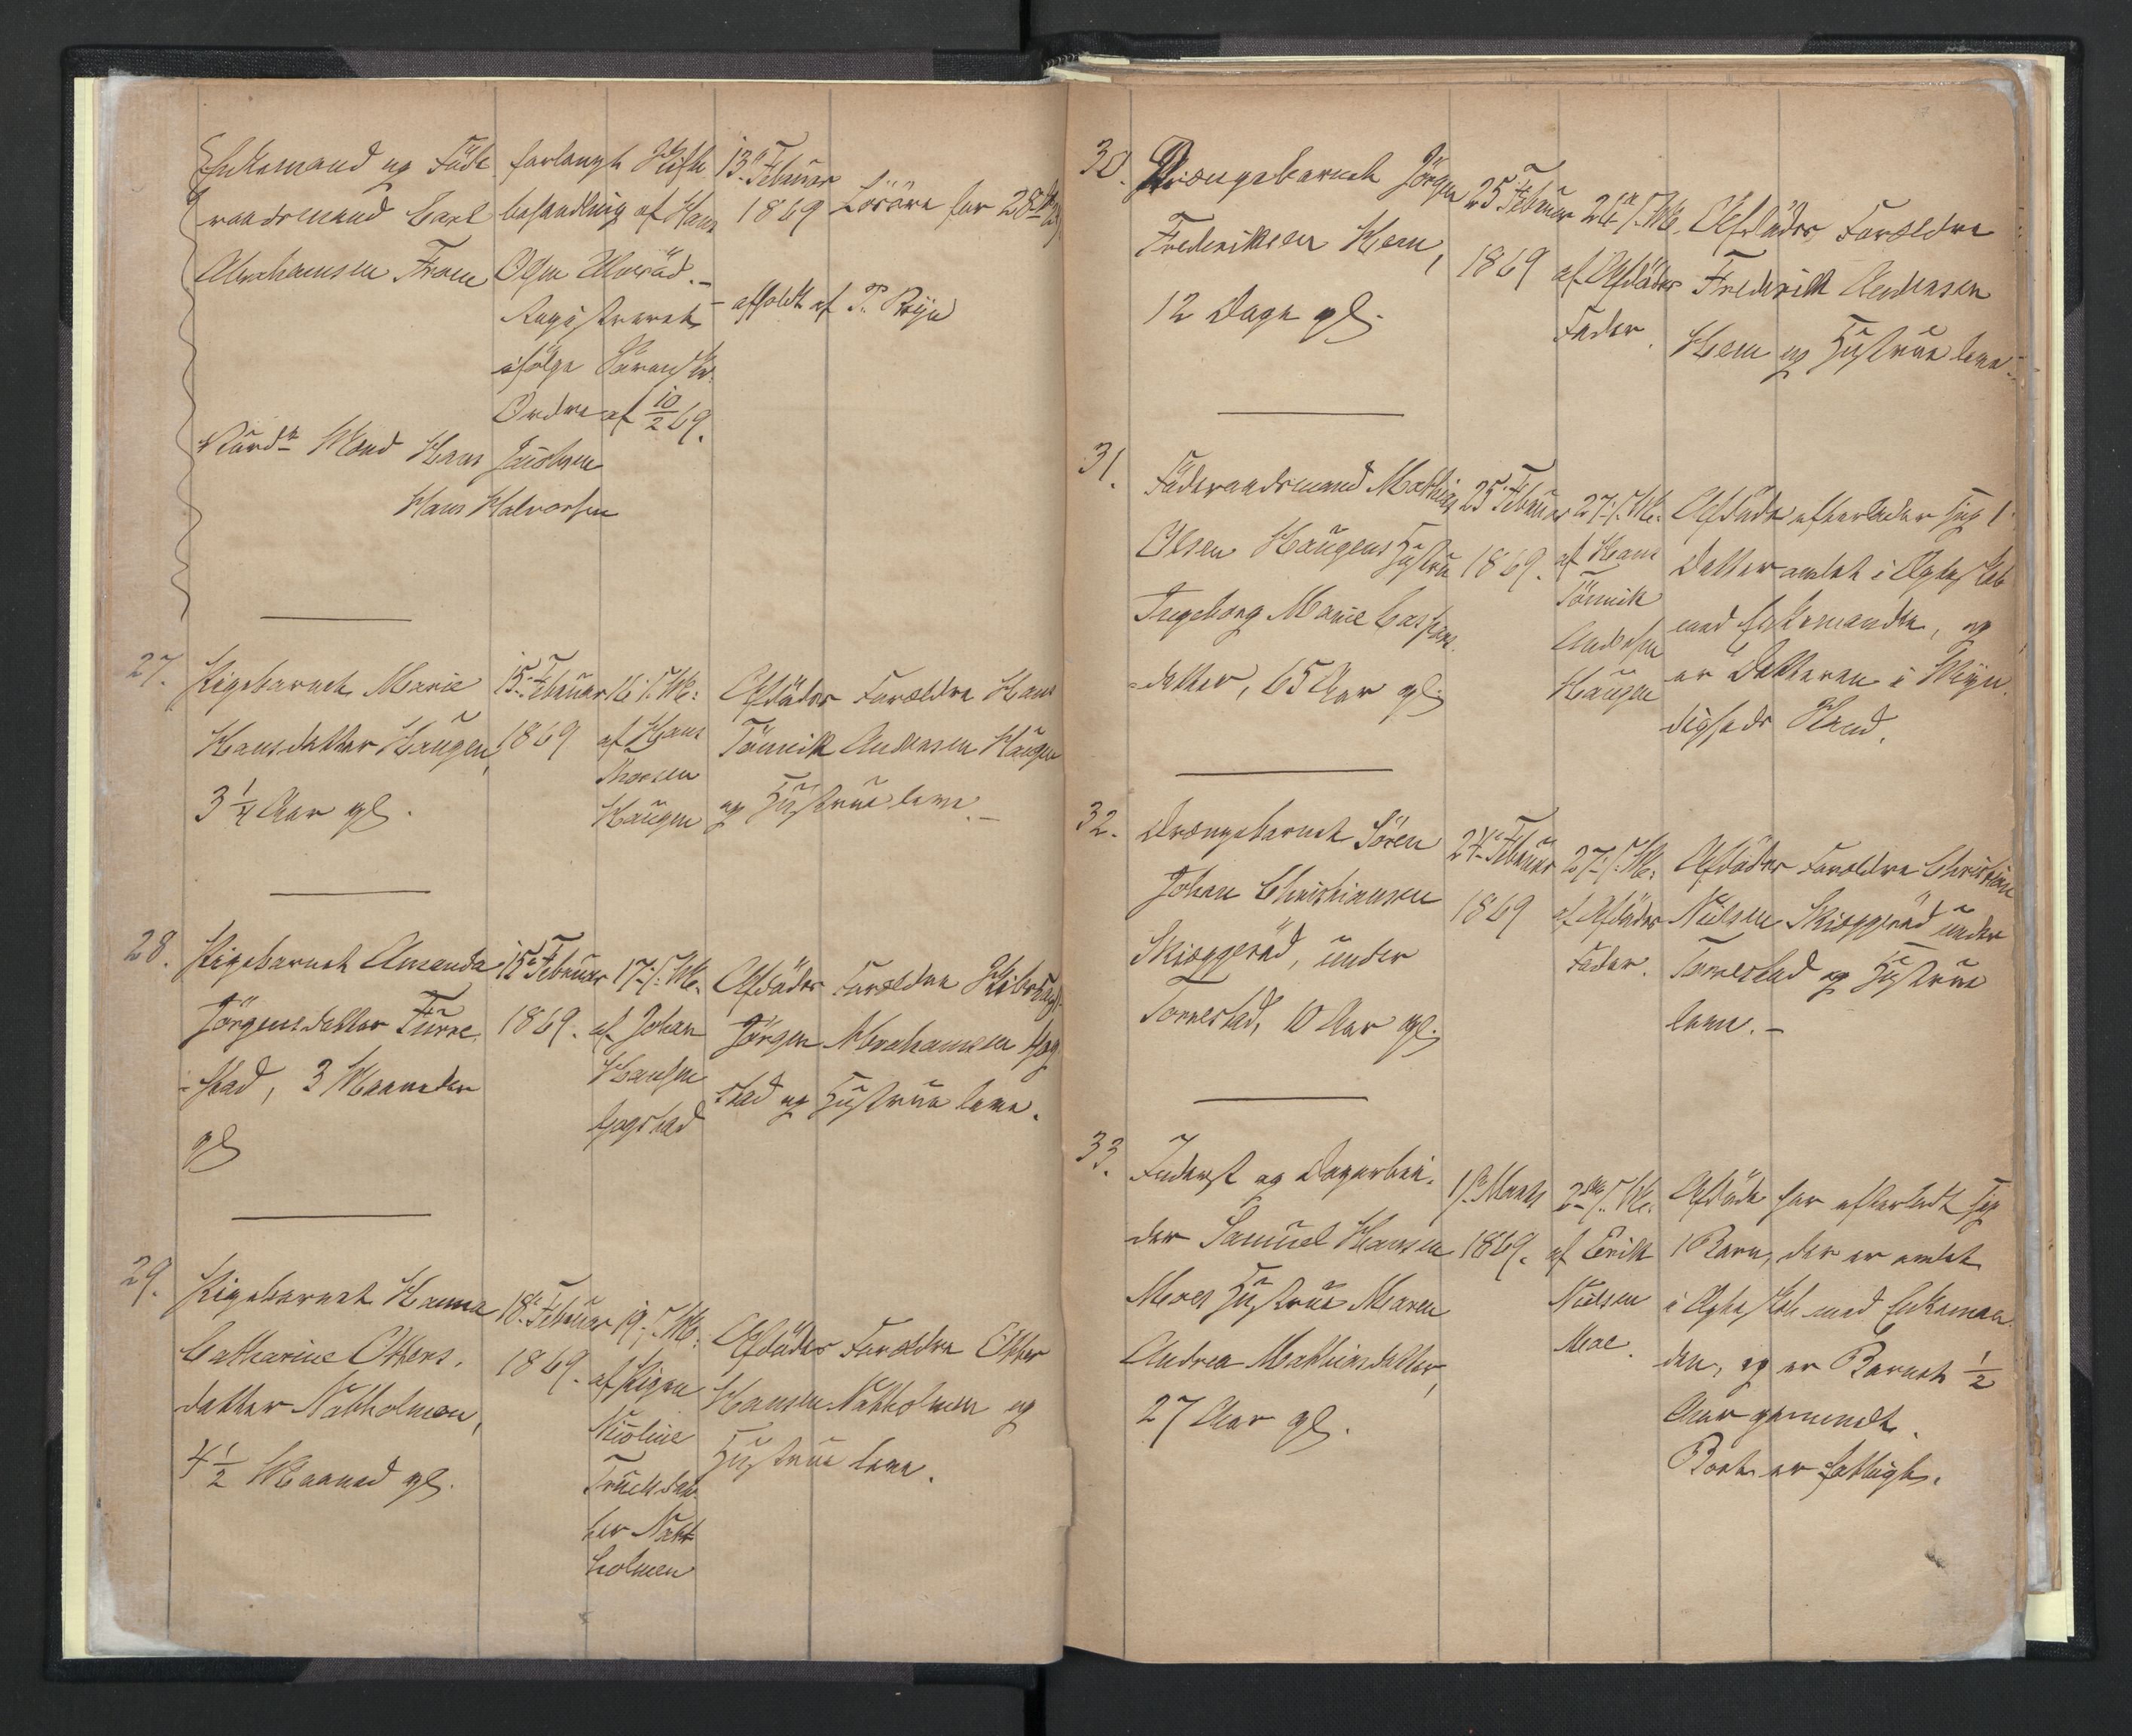 Enkemand og Føde
raadsmand Carl
Abrahamsen Fram
forlangt Skifte
behandling af Hans
Olsen
Registreret
ifølge
Ordre af 10/2 69.
13de Februar
1869
Løsøre for 28
afholdt af P.
Vurdr Mænd Hans Jacobsen
Hans Halvorsen
27.
Pigebarnet Marie
Hansdatter Haugen,
3 1/4 Aar gl.
15de Februar
1869
16. s. M.
af Hans
Thorsen
Haugen
Afdødes Forældre Hans
Tönnik Andersen Haugen
og Hustrue leve.
28.
Pigebarnet Amanda
Jörgensdatter Furre-
-stad, 3 Maaneder
gl
15de Februar
1869.
17. s. M.
af Johan
Hansen
Fogstad
Afdødes Forældre
Jörgen Abrahamsen
stad og Hustrue leve.
29.
Pigebarnet Hanna
Catharine Otters-
datter Natholmen,
4 1/2 Maaned gl.
18de Februar
1869.
19. s. M.
af Pigen
Nicoline
Trulsdat-
ter Nat-
holmen
Afdødes Forældre Otter
Hansen Natholmen og
Hustrue leve.
30.
Drængebarnet Jörgen
Frederiksen Hem,
12 Dage gl.
25de Februar
1869
26de s. M.
af Afdødes
Fader.
Afdødes Forældre
Frederik Andersen
Hem og Hustrue leve.
31.
Föderaadsmand Mathias
Olsen Haugens Hustru
Ingeborg Marie Caspers-
-datter, 65 Aar gl.
25de Februar
1869.
27. s. M.
af Hans
Tönnik
Andersen
Haugen
Afdøde efterlader sig 1
Datter avlet i Ægteskab
med Enkemanden, og
er Datteren i Myn-
digheds Stand.
32.
Drængebarnet Sören
Johan Christiansen
Skiæggeröd, under
Tornestad, 10 Aar gl.
24de Februar
1869
27. s. M.
af Afdødes
Fader.
Afdødes Forældre Christian
Nielsen Skiæggeröd under
Tornestad og Hustrue
leve.
33.
Inderst og Dagarbei-
der Samuel Hansen
Moes Hustrue Maren
Andrea Mathiasdatter,
27 Aar gl.
1ste Marts
1869.
2den s. M.
af Erik
Nielsen
Moe.
Afdøde har efterladt sig
1 Barn, der er avlet
i Ægteskab med Enkeman-
den, og er Barnet 1/2
Aar gammelt.
Boet er fattigt.